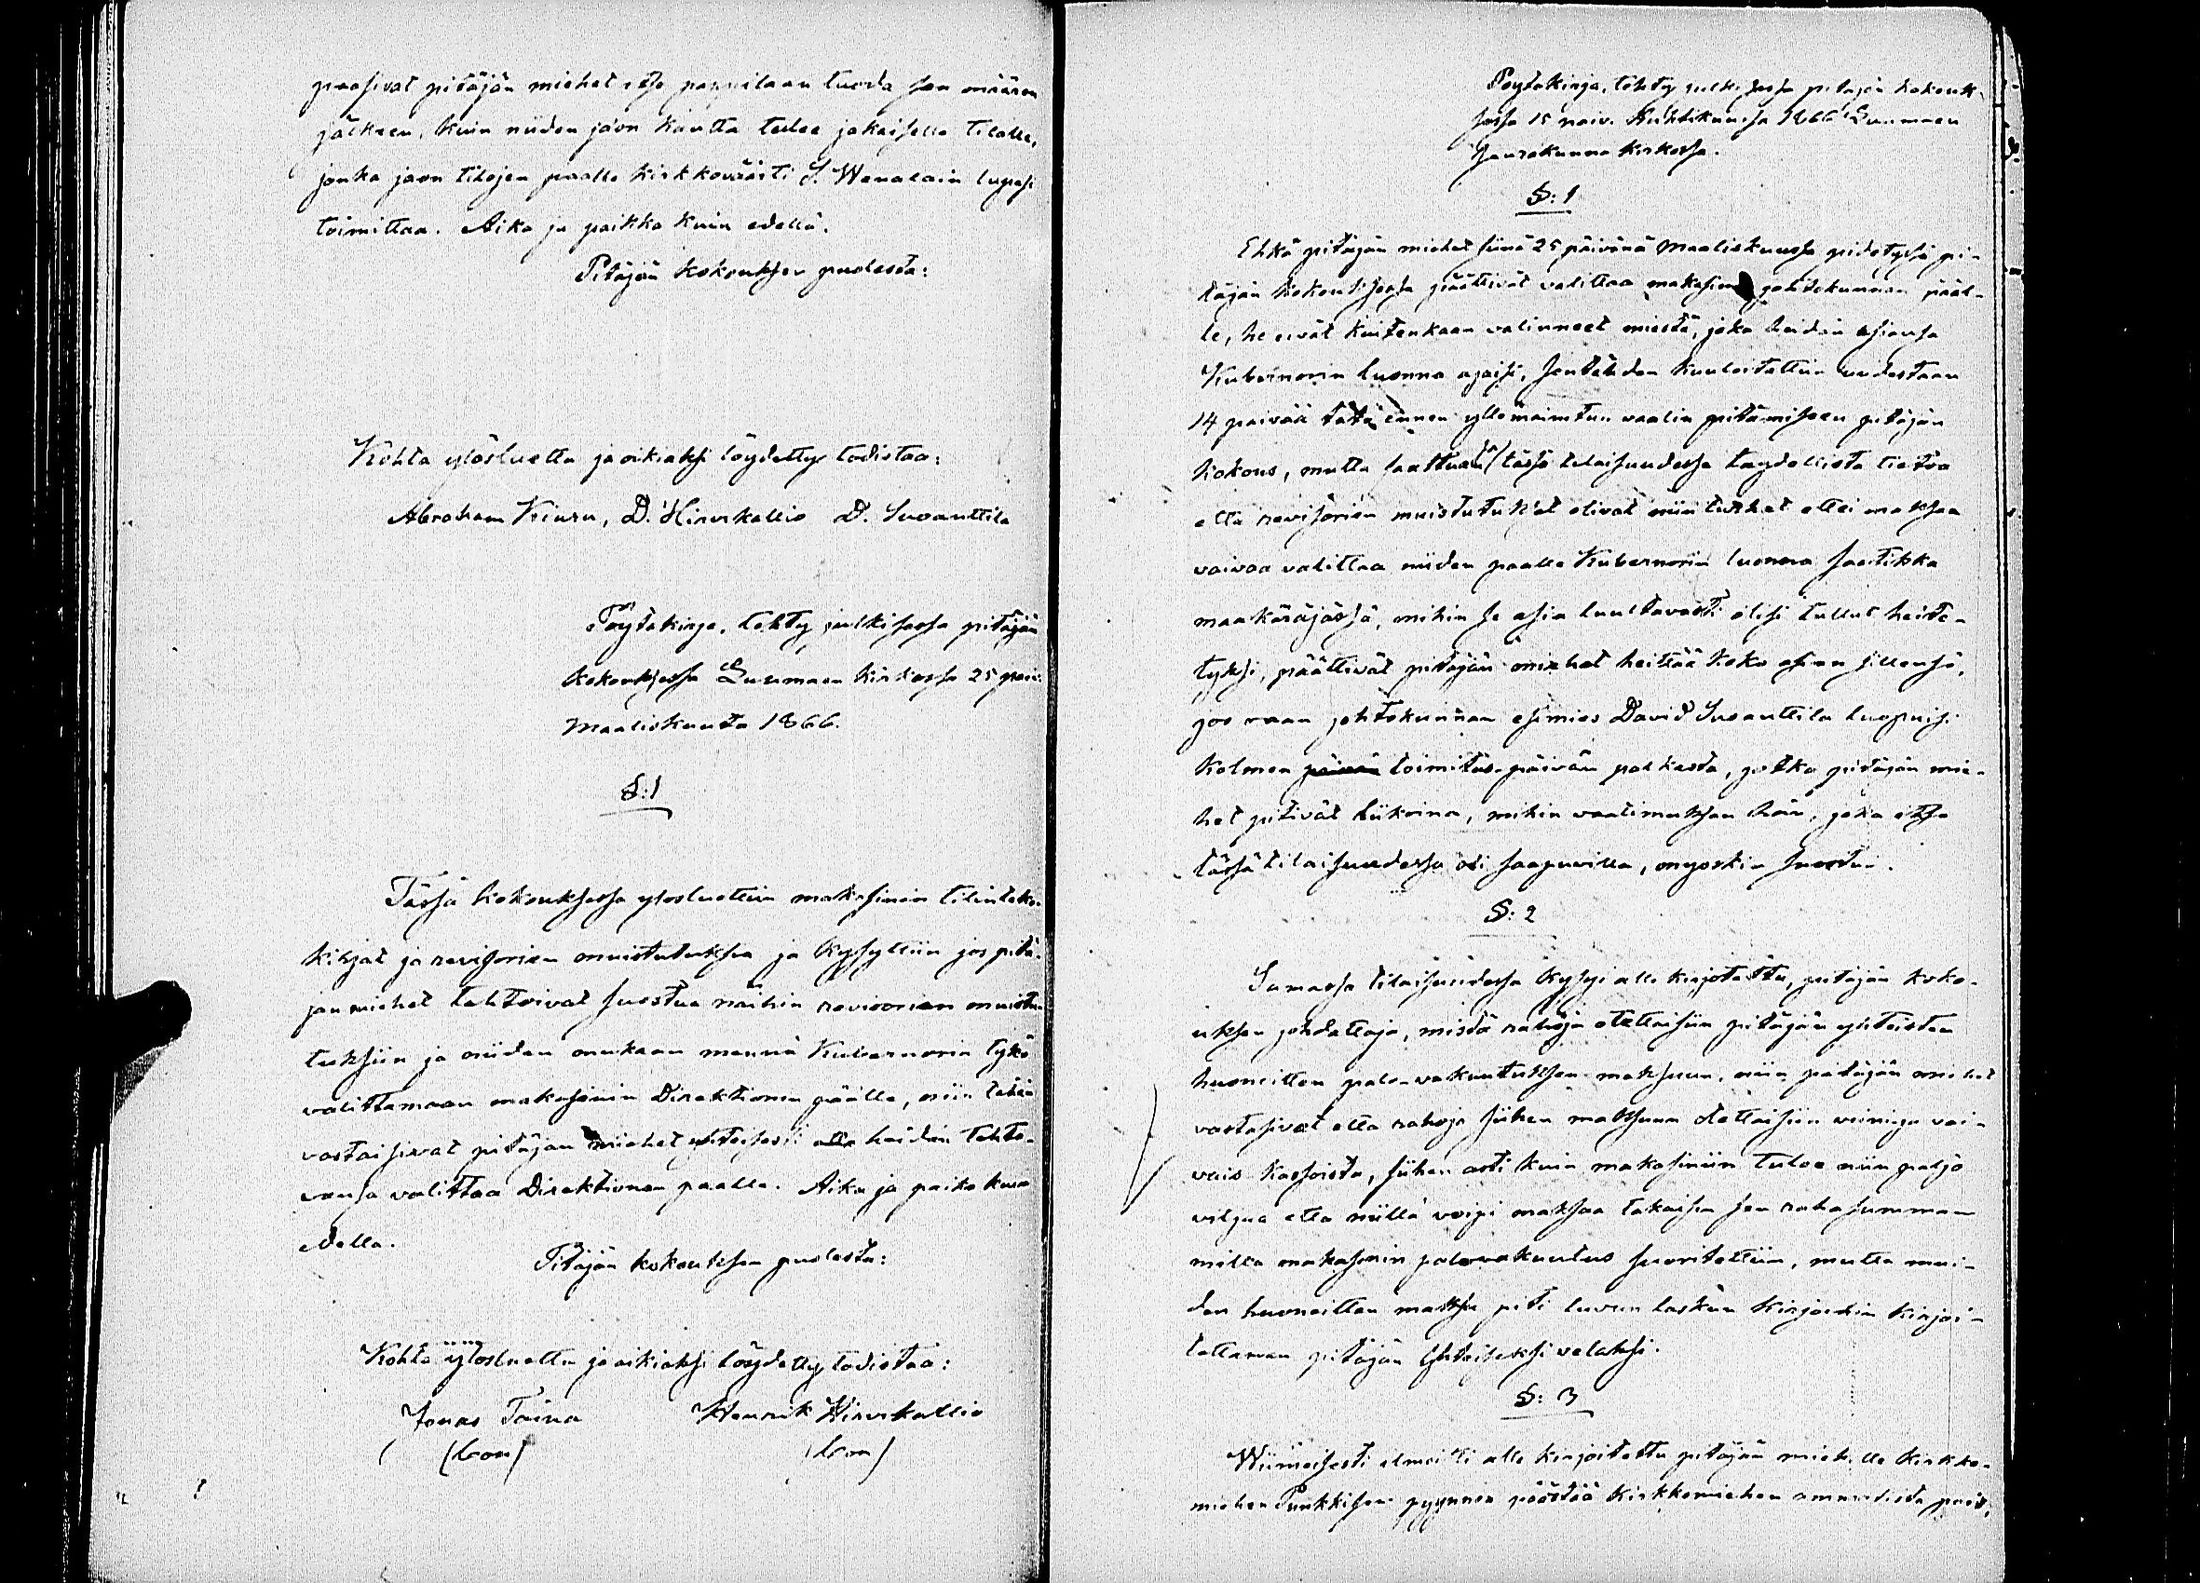 pääsivat pitäjän miehet itse pappilaan tuoda sen määrän
jälkeen, kuin niiden jaon kautta tulee jokaiselle tilalle,
jonka jaon tilojen päälle kirkkoväärti S. Wenäläin lupasi
toimittaa. Aika ja paikka kuin edellä.
Pitäjän kokouksen puolesta:
Kohta ylösluettu ja oikiaksi löydetty todistaa:
Abraham Kiuru, D. Hirvikallio D. Suoanttila
Pöytäkirja, tehty julkisessa pitäjän
kokouksessa Luumäen kirkossa 25 päiv.
Maaliskuuta 1866.
§:1
Tässä kokouksessa ylösluettiin makasinin tilinteko-
kirjat ja revisorien muistutuksia ja kysyttiin jos pitä-
jän miehet tahtoivat suostua näihin revisorien muistu-
tuksiin ja niiden mukaan mennä Kubernorin tykö
valittamaan makasinin Direktionin päälle, niin tähän
vastaisivat pitäjän miehet yhteisesti olla heidän tahto-
vansa valittaa Direktionin päälle. Aika ja paikka kuin
edellä.
Pitäjän kokouksen puolesta:
Kohta ylösluettu ja oikiaksi löydetty todistaa:
Jonas Toina Henrik Hirvikallio
(bom) (bom)
Pöytäkirja, tehty julkisessa pitäjän kokouk-
sessa 15 päiv. Huhtikuussa 1866 Luumäen
Seurakunna kirkossa.
§: 1
Ehkä pitäjän miehet siinä 25 päivänä Maaliskuussa pidetyssä pi-
täjän kokouksessa päättivät valittaa makasinin johtokunnan pääl-
le, he eivät kuitenkaan valinneet miestä, joka heidän asiansa
Kubernorin luonna ajaisi, sentähden kuuloitettiin uudestaan
14 päivää tätä ennen yllämainitun vaalin pitämiseen pitäjän
kokous, mutta saattuansa tässä tilaisuudessa täydellistä tietoa
että revisorien muistutukset olivat niin turhat ettei maksaa
vaivaa valittaa niiden päälle Kubernorin luonna saatikka
maakäräjässä, mihin se asia luultavasti olisi tullut heite-
tyksi, päättivät pitäjän miehet heittää koko asian sillensä,
jos vaan johtokunnan esimies David Suoanttila luopuisi
kolmen päivän toimitus-päivän palkasta, jotka pitäjän mie-
het pitivät liikoina, mihin vaatimuksen hän, joka itse
tässä tilaisuudessa oli saapuvilla, myöskin suostui.
§: 2
Samassa tilaisuudessa kysyi alle kirjotettu, pitäjän koko-
uksen johdattaja, mistä rahoja otettaisiin pitäjän yhteisten
huoneitten palo-vakuutuksen maksuun, niin pitäjän miehet
vastasivat että rahoja siihen maksuun otettaisiin viinign vai-
vais kassoista, siihen asti kuin makasiniin tulee niin paljo
viljaa että niillä voipi maksaa takaisin sen rahasumman
millä makasinin palovakuutus suoritettiin, mutta mui-
den huoneitten maksu piti luvun laskun kirjoihin kirjoi-
tettaman pitäjän yhteiseksi velaksi.
§: 3
Wiimeisesti ilmoitti alle kirjoitettu pitäjän miehille kirkko-
miehen Punkkisen pyynnön päästää kirkkomiehen ammatista pois,